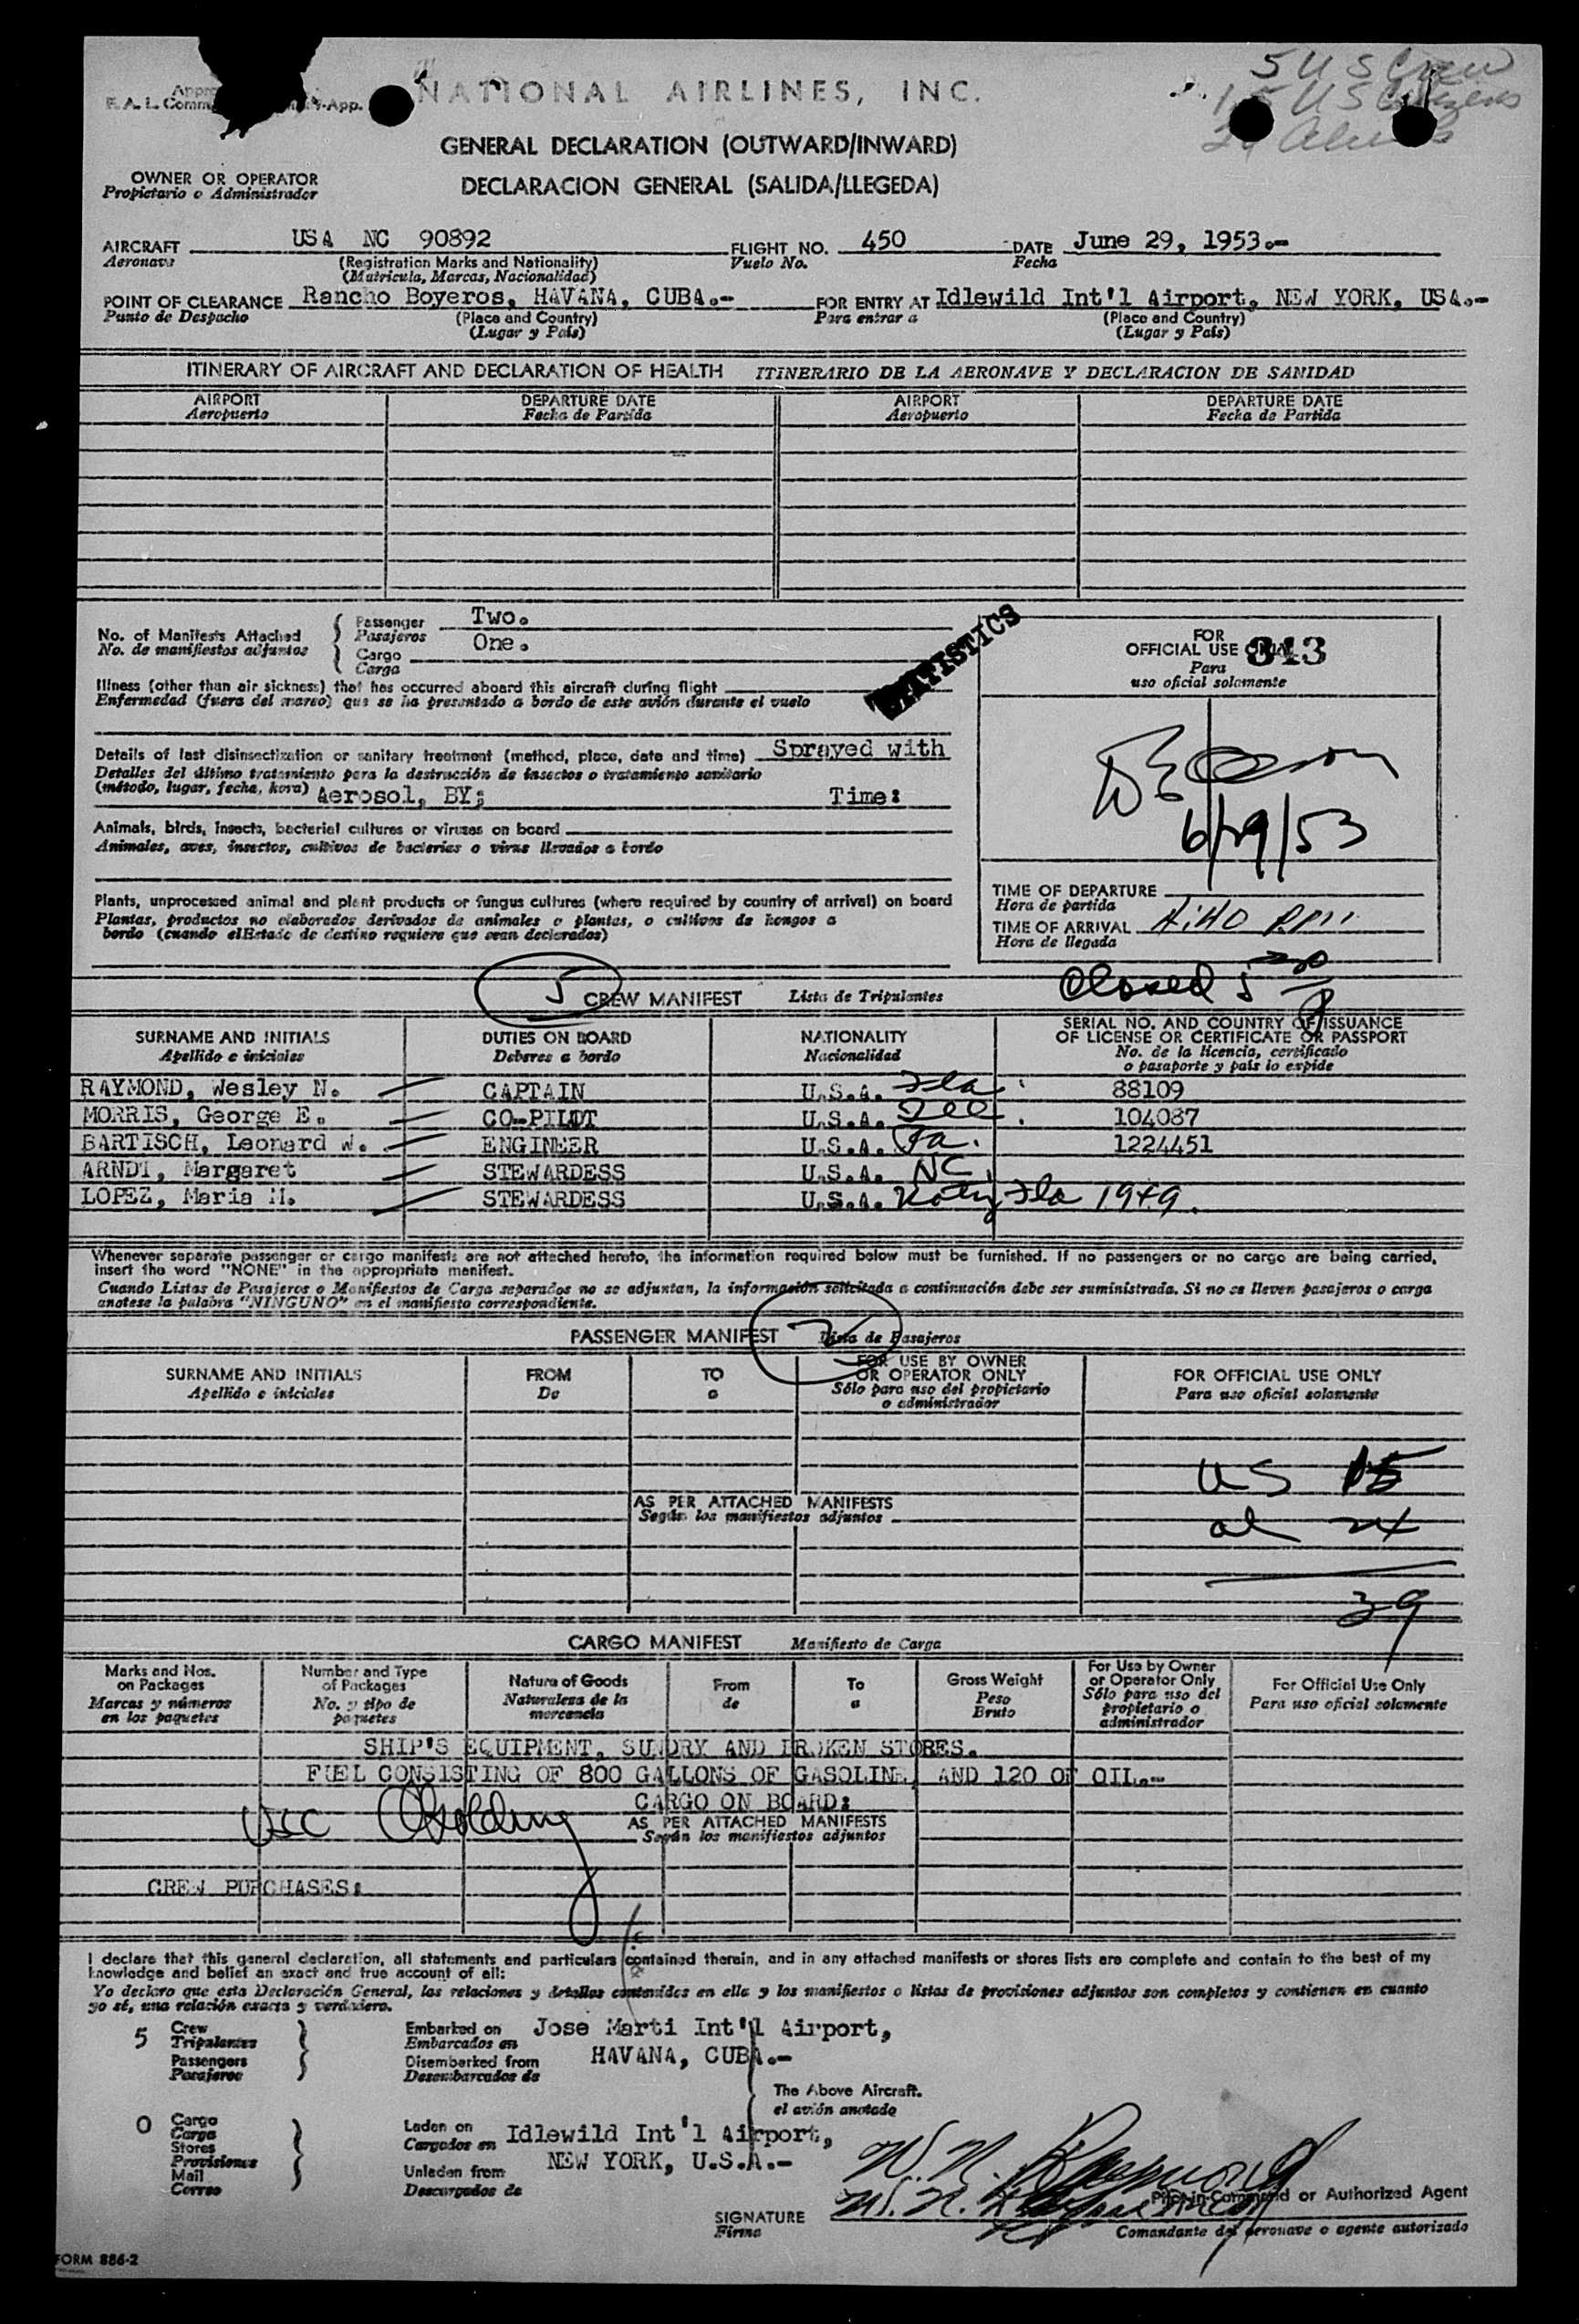 5 U S Crew
NATIONAL AIRLINES, INC.
15 U S Citizens
E. A. L. Comm App.
GENERAL DECLARATION (OUTWARD/INWARD)
OWNER OR OPERATOR
Propietario o Administrador
DECLARACION GENERAL (SALIDA/LLEGEDA)
AIRCRAFT USA NC 90892 FLIGHT NO. 450 DATE June 29, 1953.-
Aeronave (Registration Marks and Nationality) Vuelo No. Fecha
(Matricula, Marcas, Nacionalidad)
POINT OF CLEARANCE Rancho Boyeros, HAVANA, CUBA.- FOR ENTRY AT Idlewild Int'l Airport, NEW YORK, USA.-
Punto de Despacho (Place and Country) Para entrar a (Place and Country)
(Lugar y País) (Lugar y País)
ITINERARY OF AIRCRAFT AND DECLARATION OF HEALTH ITINERARIO DE LA AERONAVE Y DECLARACION DE SANIDAD
AIRPORT DEPARTURE DATE AIRPORT DEPARTURE DATE
Aeropuerto Fecha de Partida Aeropuerto Fecha de Partida
No. of Manifests Attached
No. de manifiestos adjuntos
Passenger Two.
Pasajeros
Cargo One.
Carga
STATISTICS
FOR
OFFICIAL USE 343
Para
uso oficial solamente
Illness (other than air sickness) that has occurred aboard this aircraft during flight
Enfermedad (fuera del mareo) que se ha presentado a bordo de este avión durante el vuelo
Details of last disinsectization or sanitary treatment (method, place, date and time) Sprayed with
Detalles del último tratamiento para la destrucción de insectos o tratamiento sanitario
(método, lugar, fecha, hora) Aerosol, BY; Time:
6/29/53
Animals, birds, insects, bacterial cultures or viruses on board
Animales, aves, insectos, cultivos de bacterias o virus llevados a bordo
Plants, unprocessed animal and plant products or fungus cultures (where required by country of arrival) on board
Plantas, productos no elaborados derivados de animales o plantas, o cultivos de hongos a
bordo (cuando elEstado de destino requiere que sean declarados)
TIME OF DEPARTURE
Hora de partida
TIME OF ARRIVAL 4:40 P.M.
Hora de llegada
Closed 5
5 CREW MANIFEST Lista de Tripulantes
SURNAME AND INITIALS DUTIES ON BOARD NATIONALITY SERIAL NO. AND COUNTRY OF ISSUANCE
OF LICENSE OR CERTIFICATE OR PASSPORT
Apellido e iniciales Deberes a bordo Nacionalidad No. de la licencia, certificado
o pasaporte y país lo expide
RAYMOND, Wesley N. CAPTAIN U.S.A. Fla 88109
MORRIS, George E. CO-PILOT U.S.A. 104087
BARTISCH, Leonard W. ENGINEER U.S.A. Pa. 1224451
ARNDT, Margaret STEWARDESS U.S.A. NC
LOPEZ, Maria M. STEWARDESS U.S.A. Fla 1949.
Whenever separate passenger or cargo manifests are not attached hereto, the information required below must be furnished. If no passengers or no cargo are being carried,
insert the word "NONE" in the appropriate manifest.
Cuando Listas de Pasajeros o Manifiestos de Carga separados no se adjuntan, la información solicitada a continuación debe ser suministrada. Si no se lleven pasajeros o carga
anotese la palabra "NINGUNO" en el manifiesto correspondiente.
PASSENGER MANIFEST Lista de Pasajeros
SURNAME AND INITIALS FROM TO FOR USE BY OWNER FOR OFFICIAL USE ONLY
OR OPERATOR ONLY
Apellido e iniciales De a Sólo para uso del propietario Para uso oficial solamente
o administrador
US 15
AS PER ATTACHED MANIFESTS
Según los manifiestos adjuntos
al 24
39
CARGO MANIFEST Manifiesto de Carga
Marks and Nos. on Packages
Marcas y números en los paquetes
Number and Type of Packages
No. y tipo de paquetes
Nature of Goods
Naturaleza de la mercancia
From
de
To
a
Gross Weight
Peso Bruto
For Use by Owner or Operator Only
Sólo para uso del propietario o administrador
For Official Use Only
Para uso oficial solamente
SHIP'S EQUIPMENT, SUNDRY AND BROKEN STORES.
FUEL CONSISTING OF 800 GALLONS OF GASOLINE, AND 120 OF OIL.-
CARGO ON BOARD:
AS PER ATTACHED MANIFESTS
Según los manifiestos adjuntos
CREW PURCHASES:
I declare that this general declaration, all statements and particulars contained therein, and in any attached manifests or stores lists are complete and contain to the best of my
knowledge and belief an exact and true account of all:
Yo declaro que esta Declaración General, las relaciones y detalles contenidos en ella y los manifiestos o listas de provisiones adjuntos son completos y contienen en cuanto
yo sé, una relación exacta y verdadera.
5 Crew
Tripulantes
Passengers
Pasajeros
Embarked on Jose Marti Int'l Airport,
Embarcados en
Disembarked from HAVANA, CUBA.-
Desembarcados de
The Above Aircraft.
el avión anotado
0 Cargo
Carga
Stores
Provisiones
Mail
Correo
Laden on Idlewild Int'l Airport,
Cargados en
Unladen from NEW YORK, U.S.A.-
Descargados de
W. N. Raymond
SIGNATURE
Firma
Pilot-in-Command or Authorized Agent
Comandante del aeronave o agente autorizado
FORM 886-2